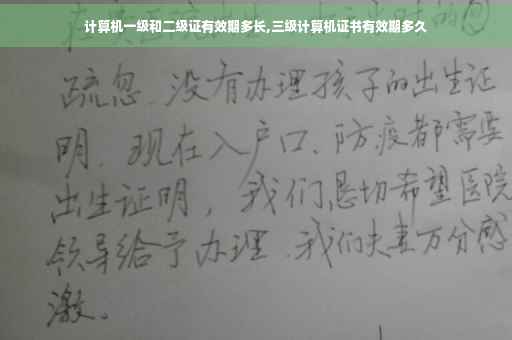 计算机一级和二级证有效期多长,三级计算机证书有效期多久
疏忽、没有办理孩子的出生证
明、现在入户口、防疫都需要
出生证明，我们恳切希望医院
领导给予办理、我们夫妻万分感
激。